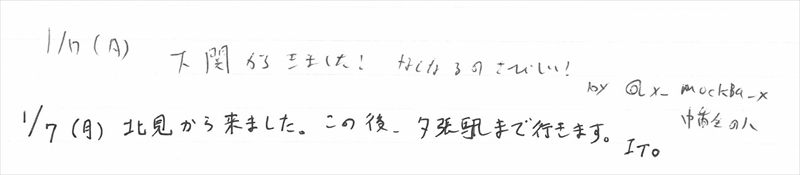 1/7(月) 下関から来ました! なくなるのさびしい!
by @x_mockba_x
1/7(月) 北見から来ました。この後、夕張駅まで行きます。
ITO